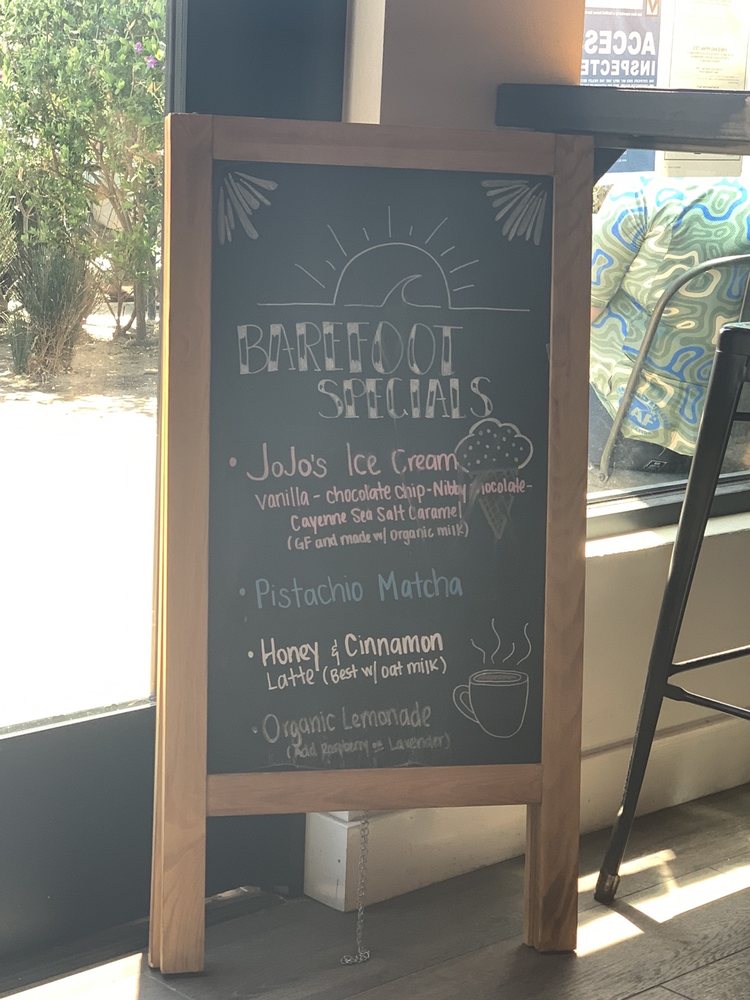 ACCES
INSPECTE
BAREFOOT
SPECIALS
• JoJo's Ice Cream
Vanilla - chocolate chip - Nibby ocolate -
Cayenne Sea Salt Caramel
(GF and made w/ organic milk)
• Pistachio Matcha
• Honey & Cinnamon
Latte (Best w/ oat milk)
• Organic Lemonade
(Add Raspberry or Lavender)